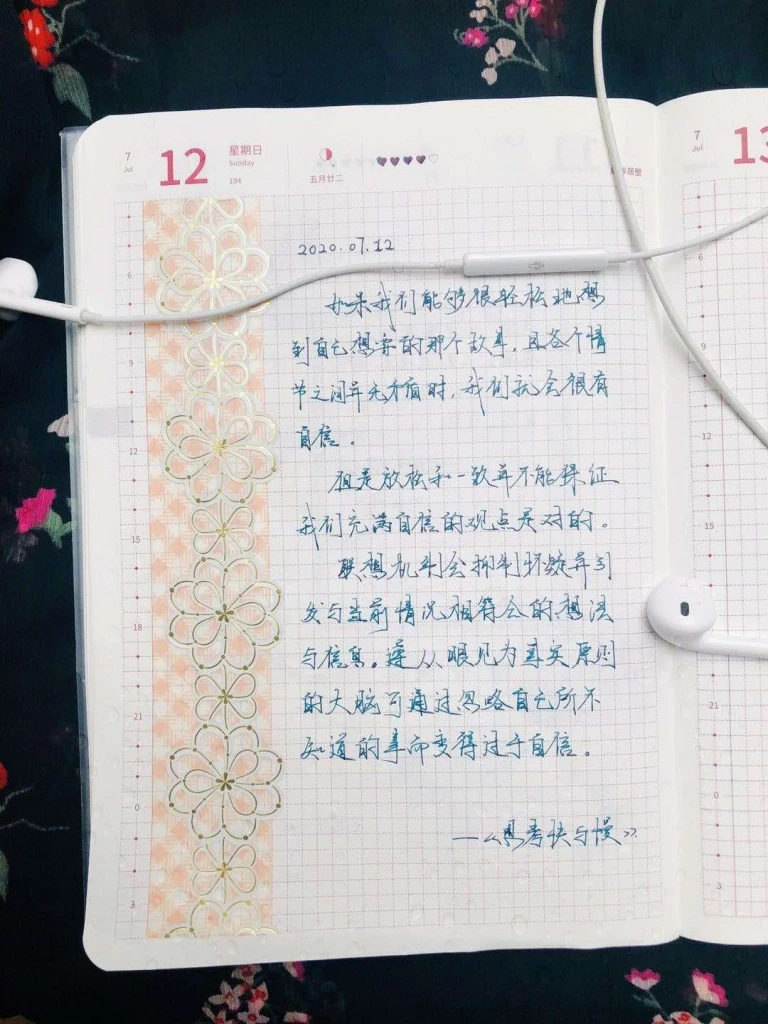 7
Jul
12
星期日
Sunday
194
五月廿二
7
Jul
13
2020.07.12
如果我们能够很轻松地想
到自己想要的那个故事，且各个情
节之间并无矛盾时，我们就会很有
自信。
但是放松和一致并不能保证
我们充满自信的观点是对的。
联想机制会抑制怀疑并引
发与当前情况相符合的想法
与信息。遵从眼见为真实原则
的大脑可通过忽略自己所不
知道的事而变得过于自信。
——《思考快与慢》
6
9
12
15
18
21
0
3
12
15
21
0
3